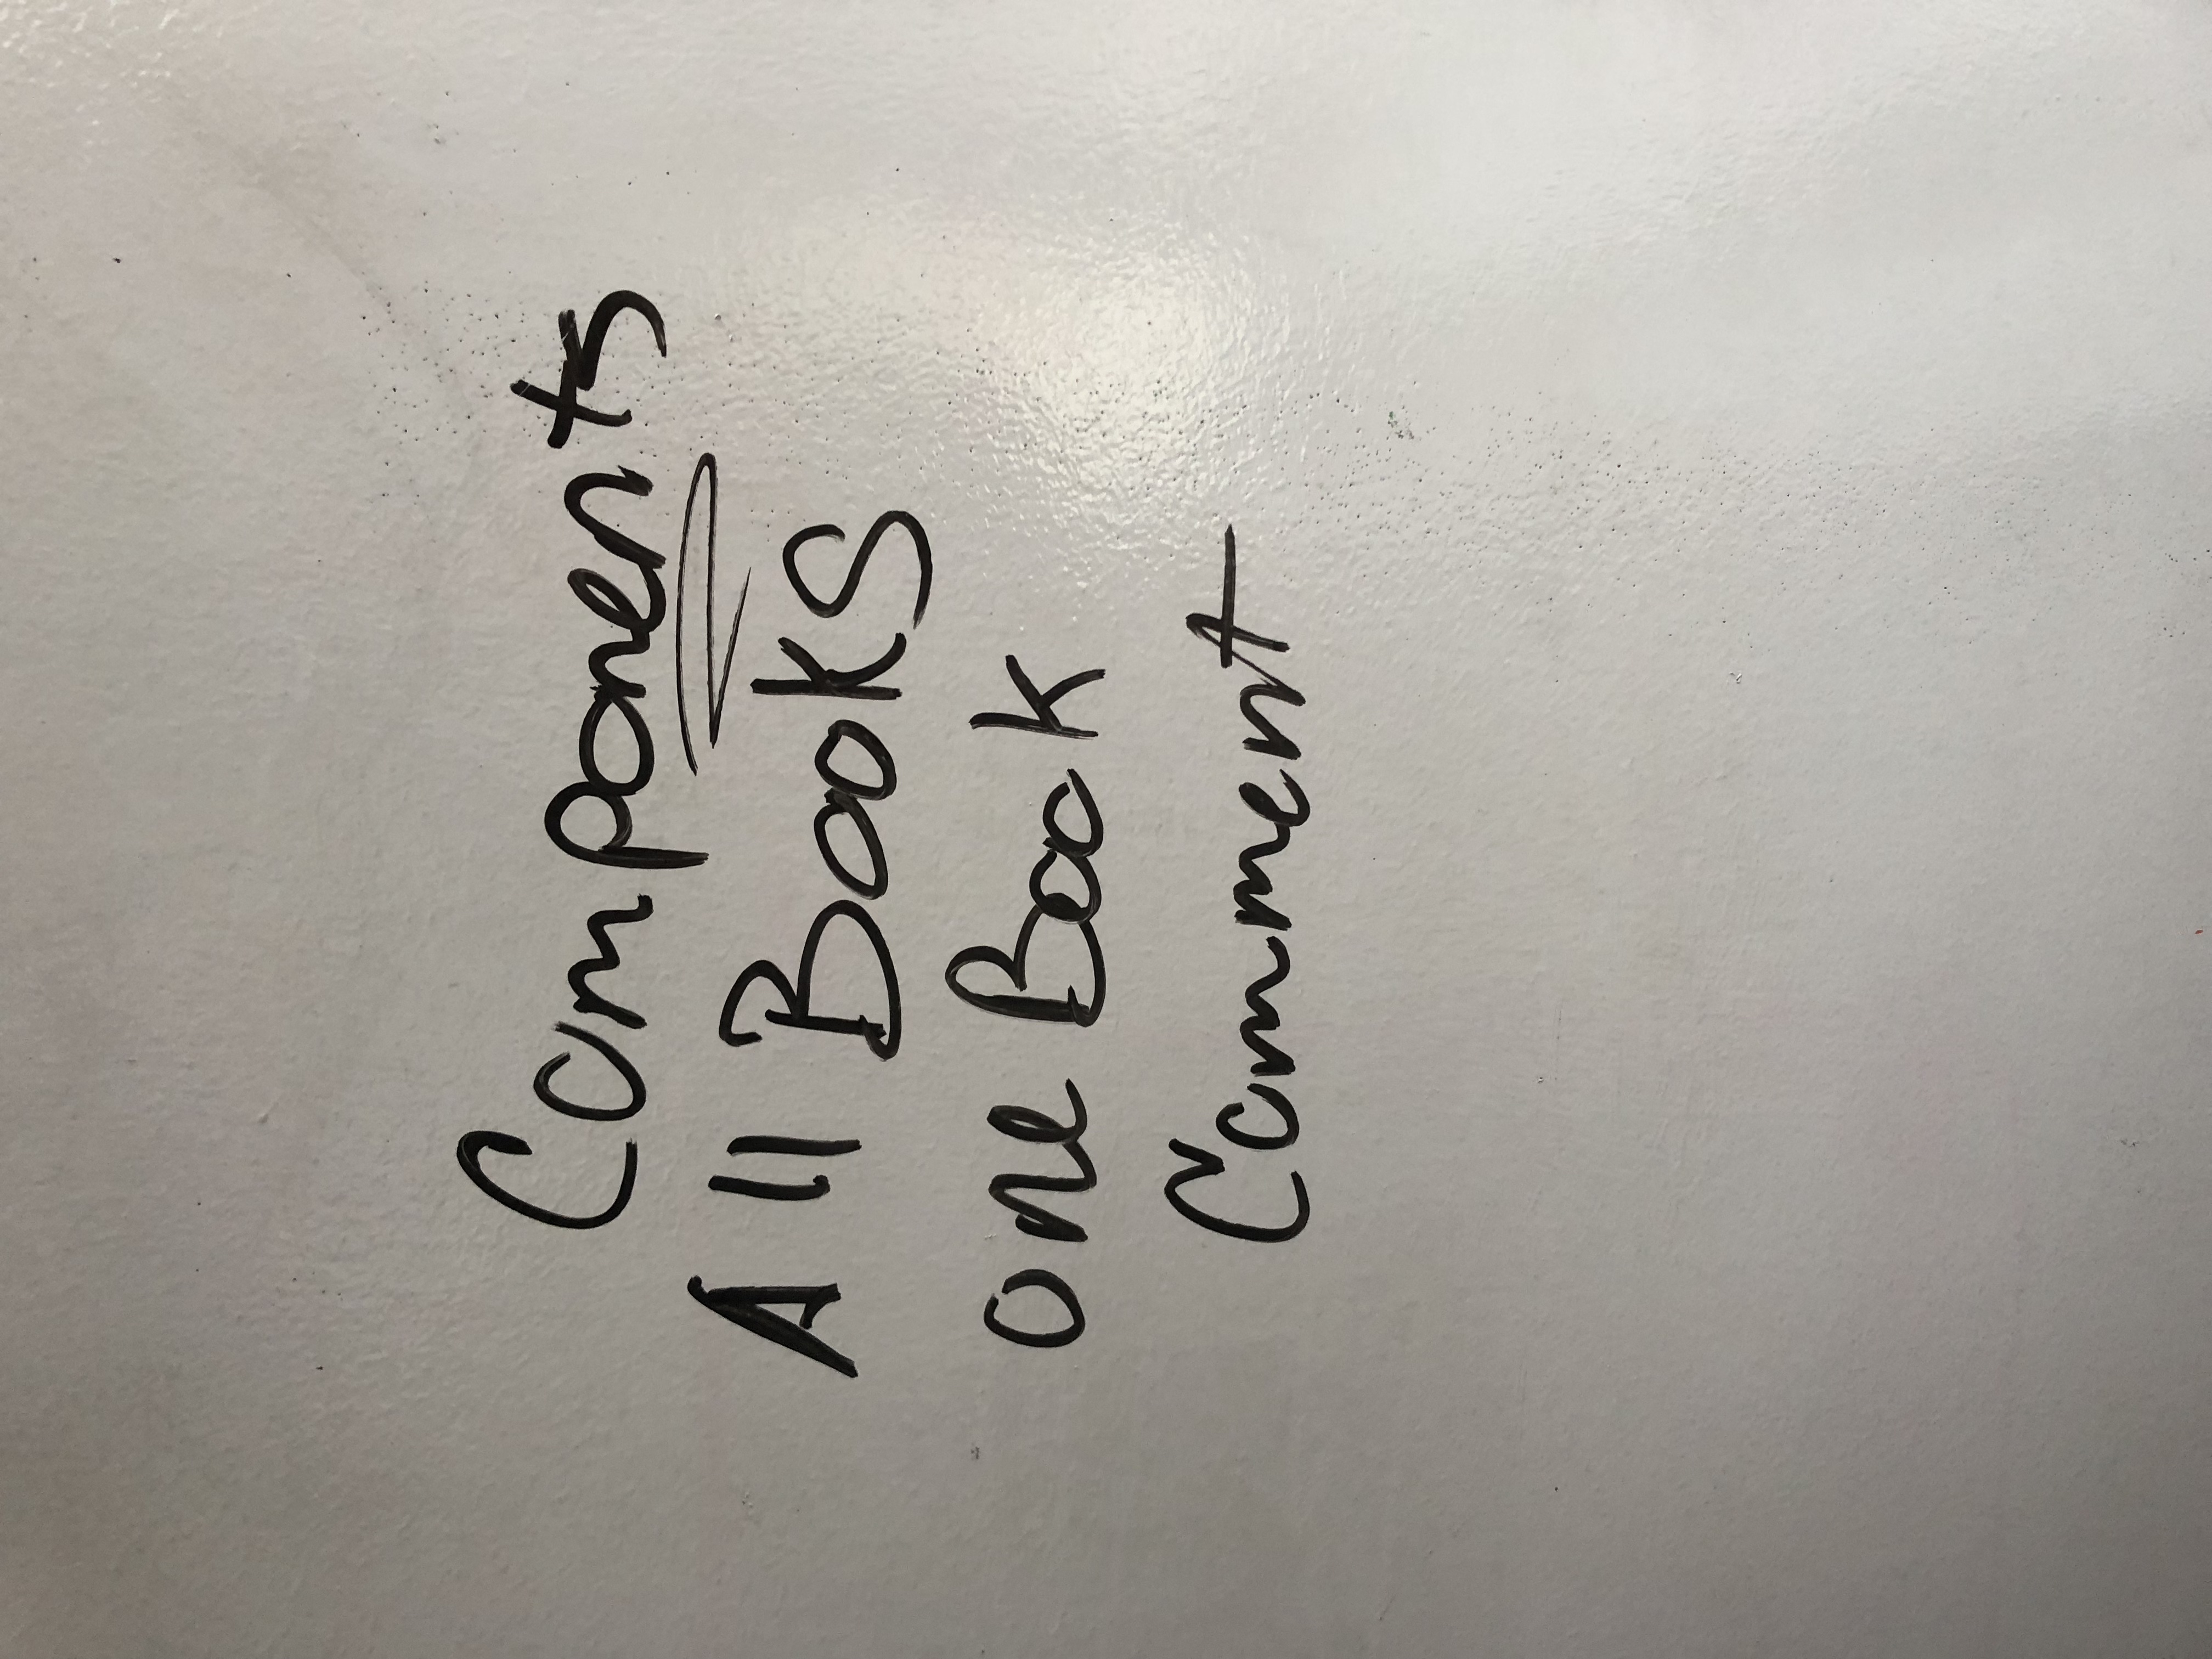 Components
All Books
one Book
Comment